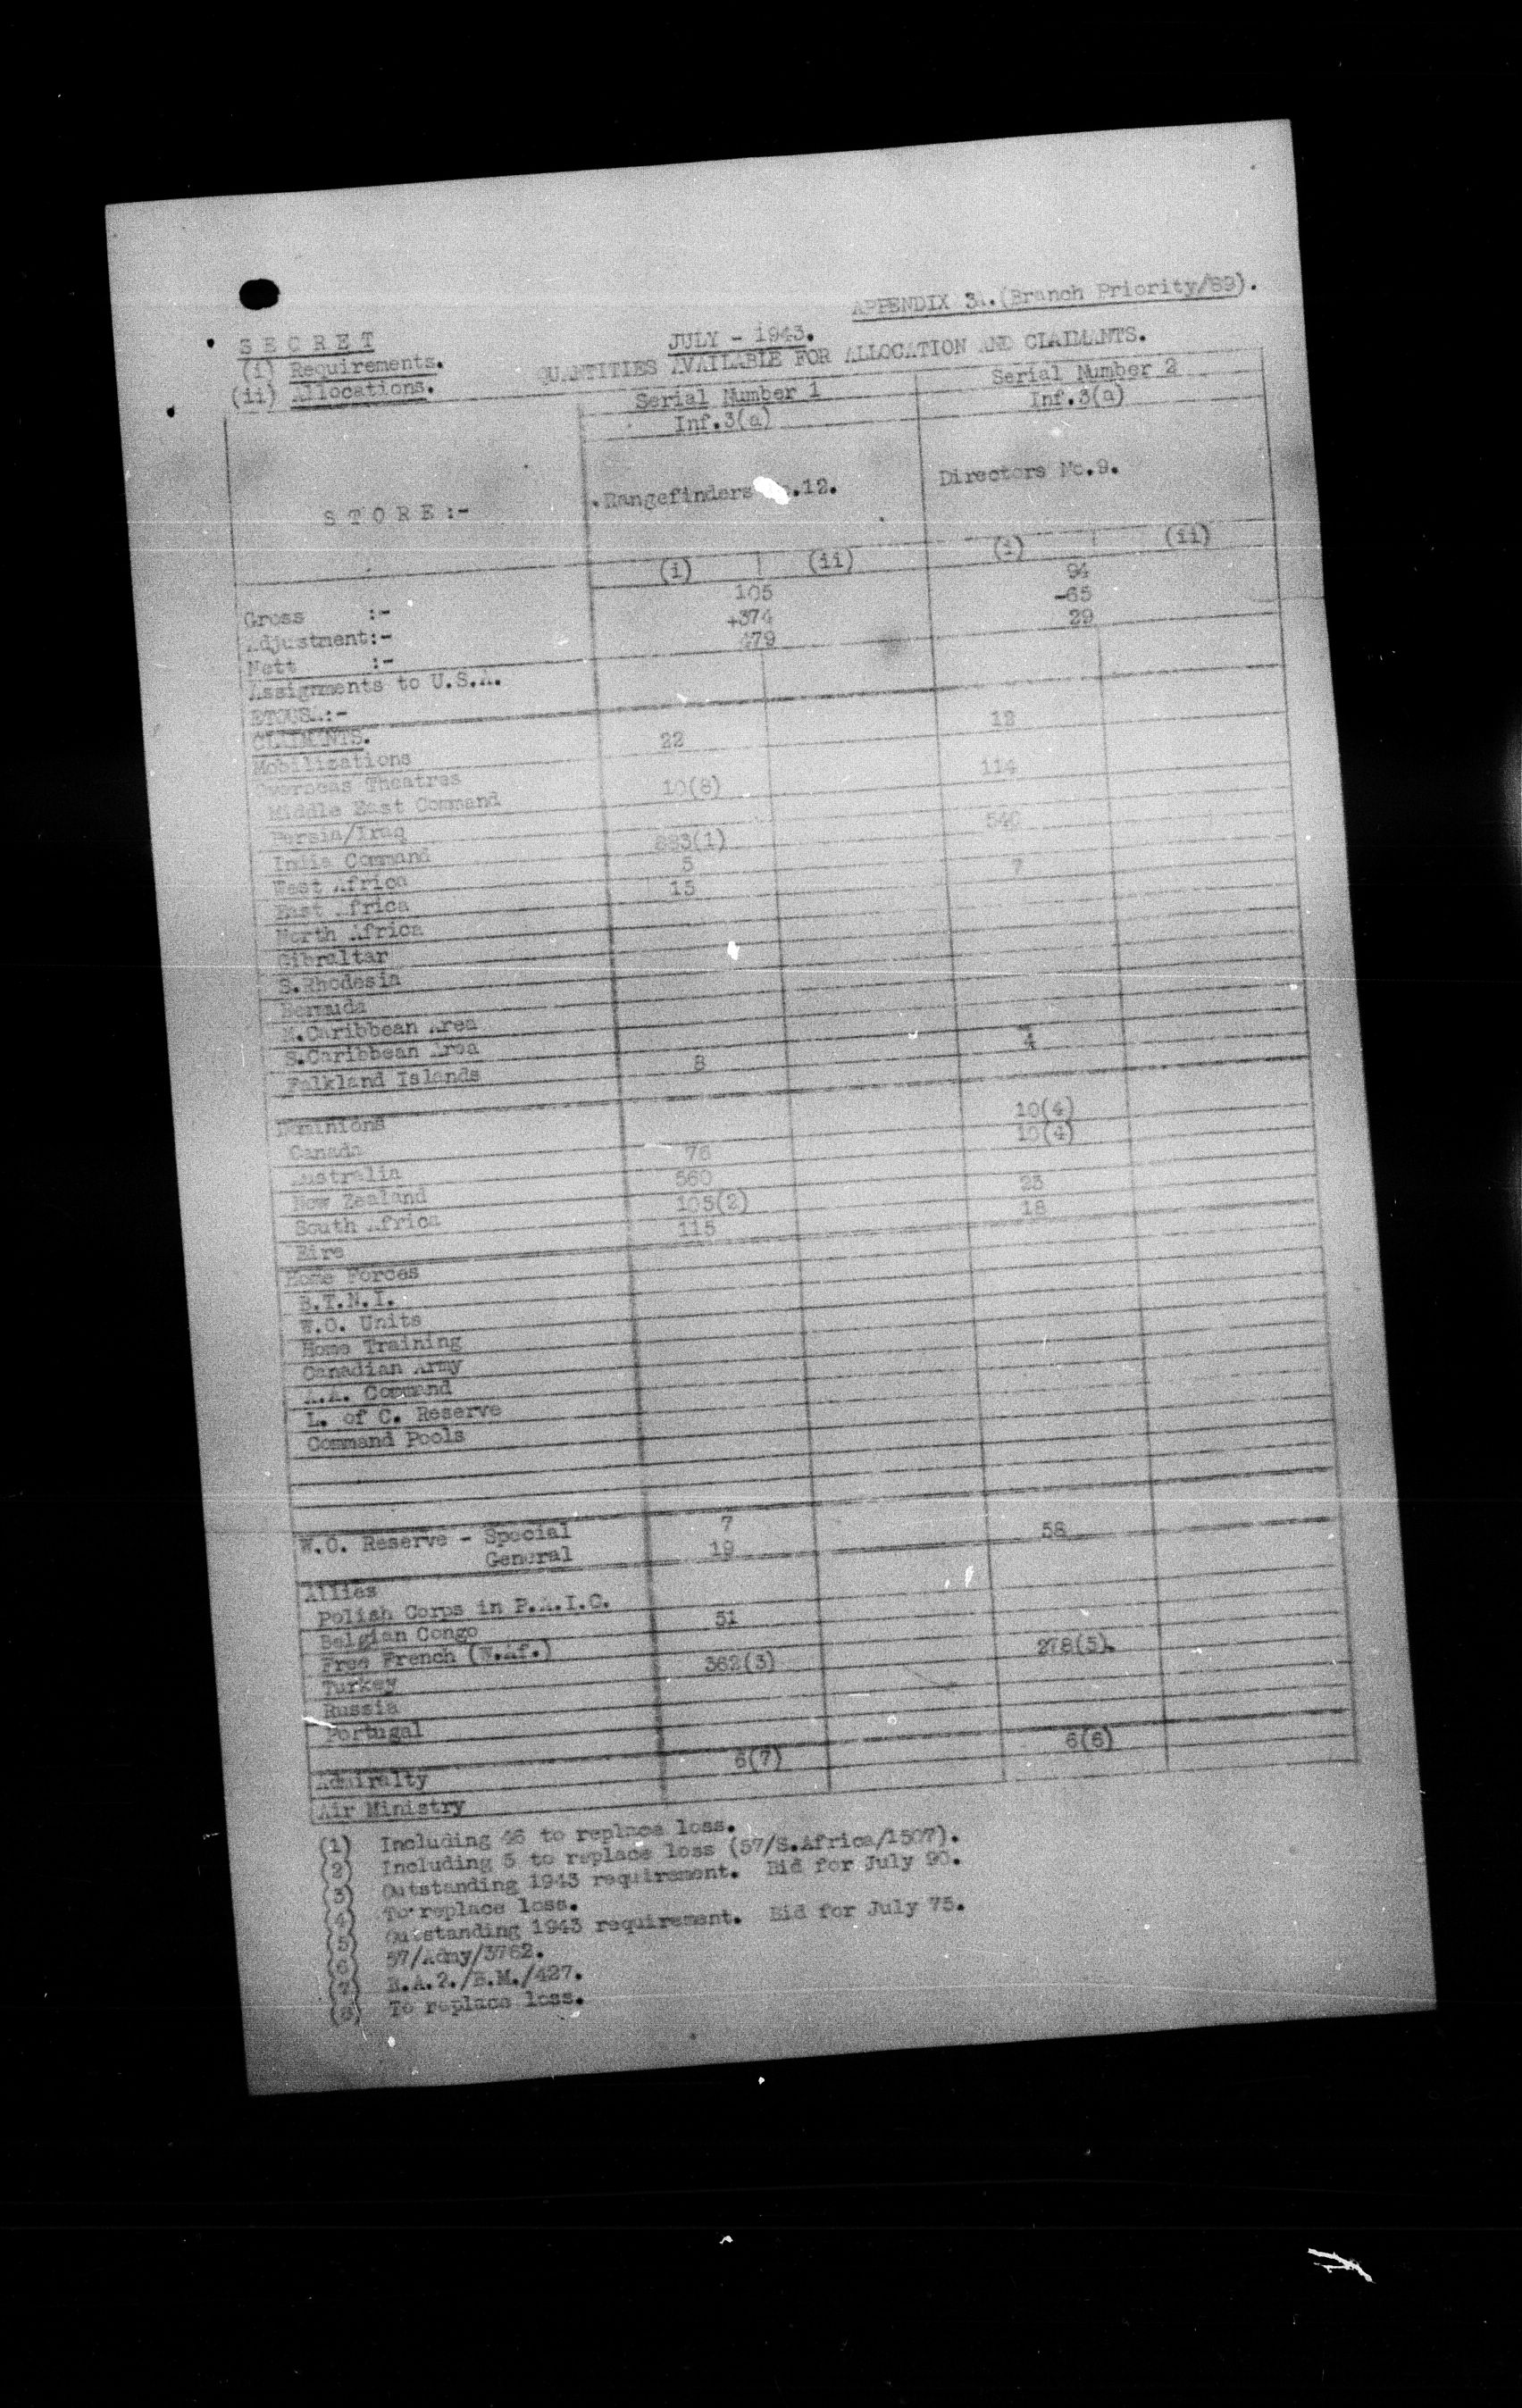 APPENDIX 3A.(Branch Priority/89).
SECRET
JULY - 1943.
(i) Requirements.
QUANTITIES AVAILABLE FOR ALLOCATION AND CLAIMANTS.
(ii) Allocations.
Serial Number 1 Serial Number 2
Inf.3(a) Inf.3(a)
STORE:- Rangefinders .12. Directors No.9.
(i) (ii) (i) (ii)
Gross :- 105 94
Adjustment:- +374 -65
Nett :- 479 29
Assignments to U.S.A.
ETOUSA:-
CLAIMANTS.
Mobilizations 22 12
Overseas Theatres
Middle East Command 10(8) 114
Persia/Iraq
India Command 883(1) 540
West Africa 5
East Africa 15 7
North Africa
Gibraltar
S.Rhodesia
Bermuda
N.Caribbean Area
S.Caribbean Area
Falkland Islands 8 4
Dominions
Canada 10(4)
Australia 76 10(4)
New Zealand 560
South Africa 105(2) 25
Eire 115 18
Home Forces
B.T.N.I.
W.O. Units
Home Training
Canadian Army
A.A. Command
L. of C. Reserve
Command Pools
W.O. Reserve - Special 7
General 19 58
Allies
Polish Corps in P.A.I.C.
Belgian Congo 51
Free French (W.Af.)
Turkey 362(3) 278(5).
Russia
Portugal
Admiralty 6(7) 6(6)
Air Ministry
(1) Including 46 to replace loss.
(2) Including 5 to replace loss (57/S.Africa/1507).
(3) Outstanding 1943 requirement. Bid for July 90.
(4) To replace loss.
(5) Outstanding 1943 requirement. Bid for July 75.
(6) 57/Admy/3762.
(7) R.A.2./B.M./427.
(8) To replace loss.